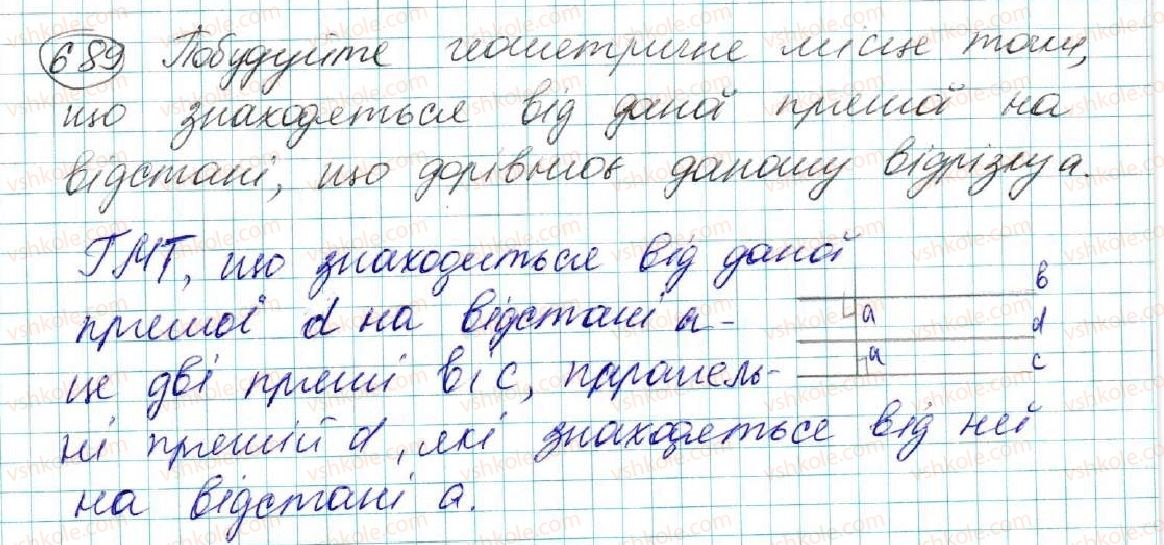 689 Побудуйте геометричне місце точок,
що знаходяться від даної прямої на
відстані, що дорівнює даному відрізку a.
ГМТ, що знаходиться від даної
прямої d на відстані a -
це дві прямі b і c, паралель-
ні прямій d, які знаходяться від неї
на відстані a.
b
a d
a c